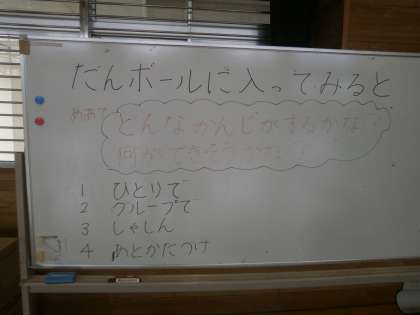 だんボールに入ってみると
めあて
どんなかんじがするかな?
何ができそうかな?
1 ひとりで
2 グループで
3 しゃしん
4 あとかたづけ